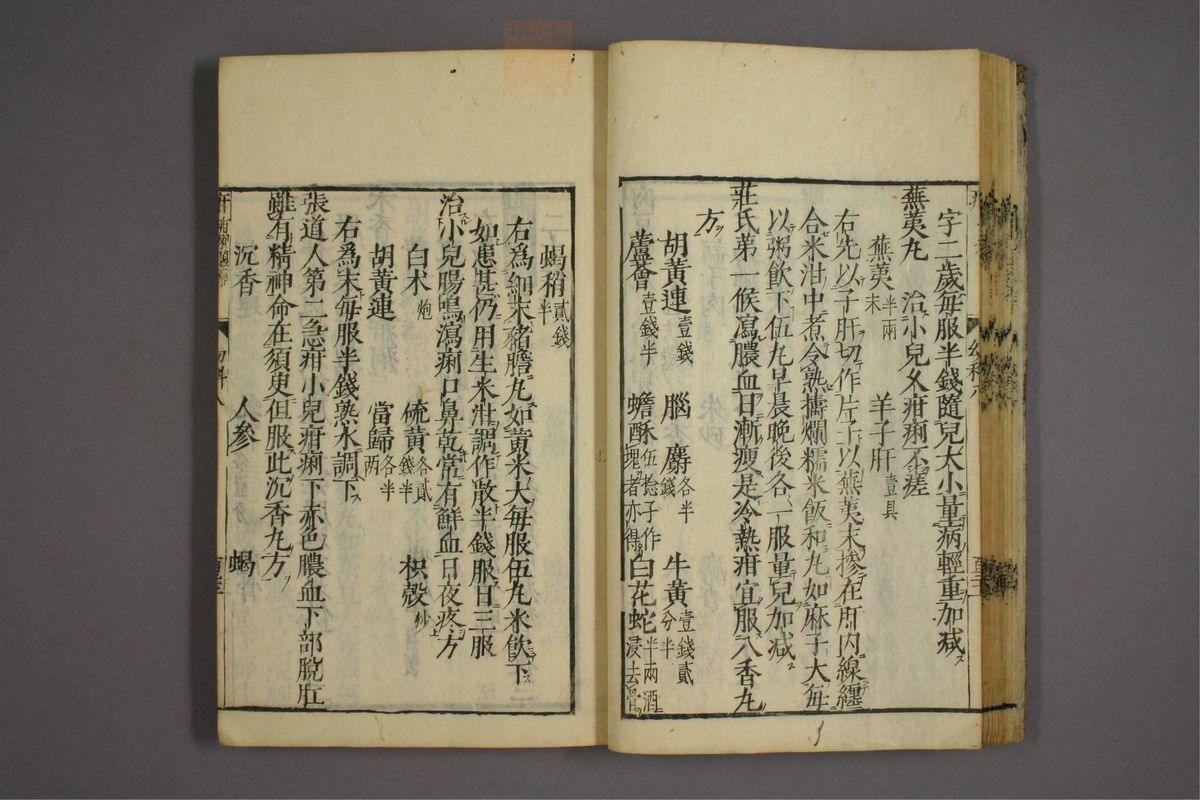 字二歲每服半錢隨兒大小量病輕重加减
蕪荑丸　治小兒久疳痢不瘥
蕪荑半兩末　羊子肝壹具
右先以子肝切作片子以蕪荑末摻在肝内線纏
合米泔中煮令熟擣爛糯米飯和丸如麻子大每
以粥飲下伍丸早晨晚後各一服量兒加减
莊氏第一候瀉膿血日漸瘦是冷熱疳宜服八香丸
方
胡黄連壹錢　腦　麝各半錢　牛黄壹錢貳分半
蘆薈壹錢半　蟾酥伍捻子作塊者亦得　白花蛇半兩酒浸去骨
蝎稍貳錢半
右爲細末猪膽丸如黄米大每服伍丸米飲下
如患甚仍用生米泔調作散半錢服日三服
治小兒腸鳴瀉痢口鼻乾常有鮮血日夜疼方
白术炮　硫黄各貳錢半　枳殻炒
胡黄連　當歸各半兩
右爲末每服半錢熟水調下
張道人第二急疳小兒疳痢下赤色膿血下部脫肛
雖有精神命在須臾但服此沉香丸方
沉香　人參　蝎